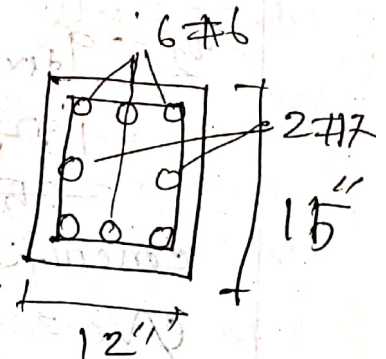 6#6
2#7
15"
12"